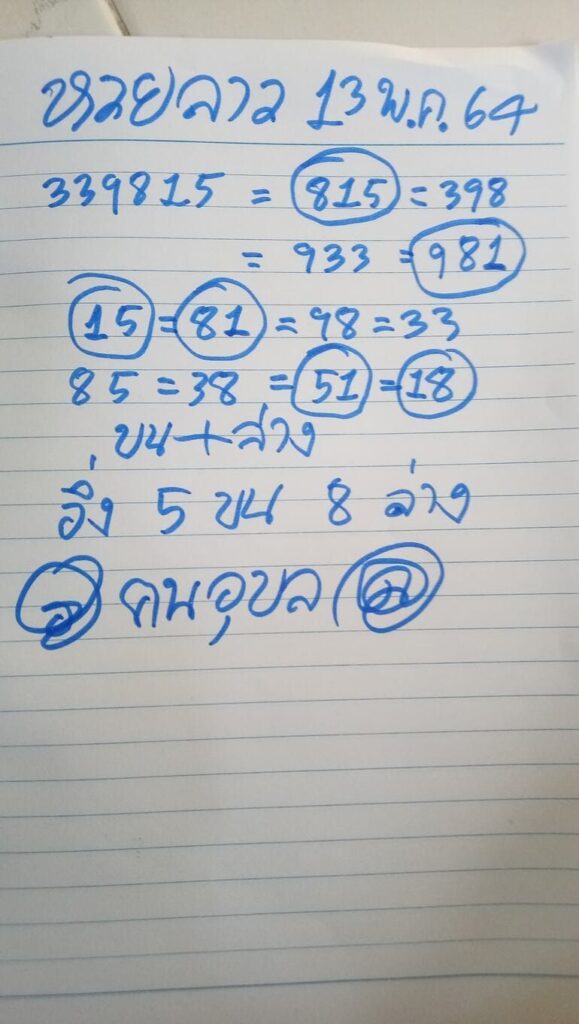 หวยลาว 13 พ.ค. 64
339815 = 815 = 398
= 933 = 981
15 = 81 = 98 = 33
85 = 38 = 51 = 18
บน + ล่าง
วิ่ง 5 บน 8 ล่าง
คนอุบล